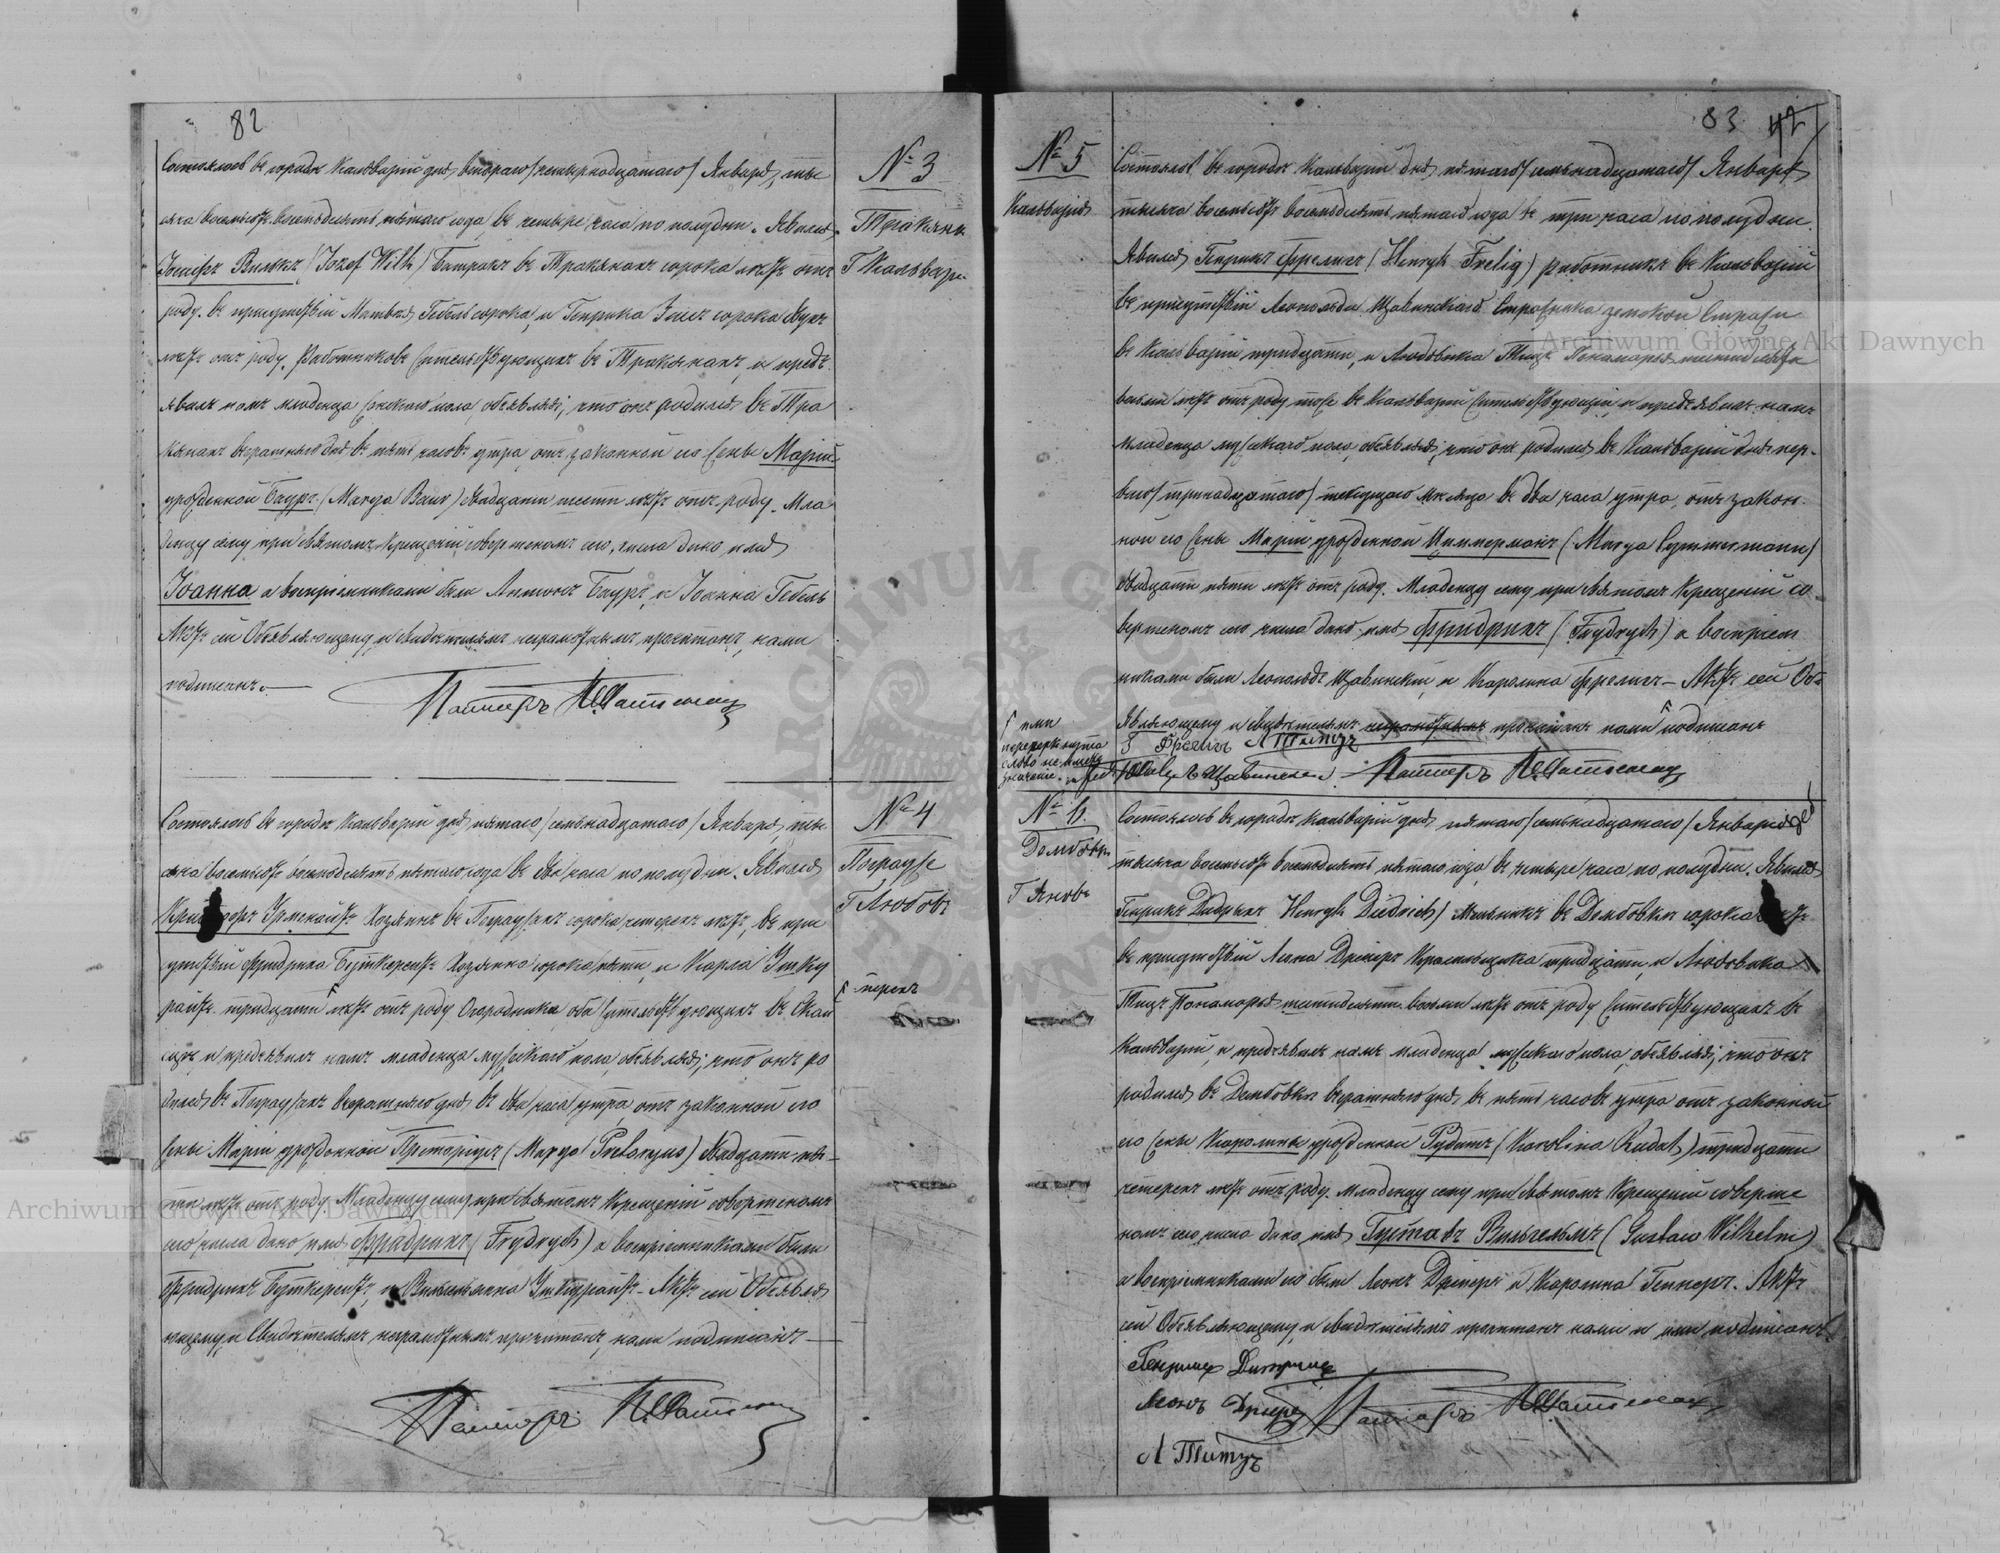 82
№ 3
Тракяны
Г Кальвари
Состоялось въ городѣ Кальваріи дня втораго/четырнадцатаго/ Января, ты
сяча восемьсотъ восемьдесятъ пятаго года въ четыре часа по полудни. Явился
Іосифъ Вилькъ /Jozef Wilk/ Батракъ въ Тракянахъ сорока лѣтъ отъ
роду, въ присутствіи Матвея Гебель сорока, и Генрика Зинъ сорока двухъ
лѣтъ отъ роду, Работниковъ жительствующихъ въ Тракянахъ, и предъ
явилъ намъ младенца женскаго пола, объявляя, что онъ родился въ Тра
кянахъ вчерашняго дня въ пять часовъ утра, отъ законной его жены Маріи
урожденной Бауръ (Marya Baur) двадцати шести лѣтъ отъ роду. Мла
денцу сему при святомъ Крещеніи, совершенномъ сего числа дано имя
Іоанна а воспріемниками были Антонъ Бауръ, и Іоанна Гебель
Актъ сей Объявляющему и Свидѣтелямъ неграмотнымъ прочитанъ, нами
подписанъ.
Пасторъ
№ 4
Пограузе
Г Любовъ
Состоялось въ городѣ Кальваріи дня пятаго/семьнадцатаго/ Января, ты
сяча восемьсотъ восемьдесятъ пятаго года въ два часа по полудни. Явился
Хозяинъ въ Пограузахъ сорока четырехъ лѣтъ, въ при
сутствіи Фридриха Хозяина сорока пяти, и Карла
тридцати лѣтъ отъ роду Огородника, оба жительствующихъ въ
и предъявилъ намъ младенца мужескаго пола, объявляя, что онъ ро
дился въ Пограузахъ вчерашняго дня въ два часа утра, отъ законной его
жены Маріи урожденной Преторіусъ (Marya Pretoryus) двадцати пя-
ти лѣтъ отъ роду. Младенцу сему при святомъ Крещеніи совершенномъ
сего числа дано имя Фридрихъ (Frydrych) а воспріемниками были
Фридрихъ и Вильгельмина Актъ сей Объявля
ющему и Свидѣтелямъ неграмотнымъ прочитанъ, нами подписанъ
Пасторъ
83
42
№ 5
Кальварія
Состоялось въ городѣ Кальваріи дня пятаго/семьнадцатаго/ Января
тысяча восемьсотъ восемьдесятъ пятаго года въ три часа по полудни.
Явился Генрихъ Фрелигъ (Henryk Frelig) работникъ въ Кальваріи
въ присутствіи Леопольда Щавинскаго Стражника земской Стражи
въ Кальваріи тридцати, и Людовика Тицъ Пономаря
восьми лѣтъ отъ роду, тоже въ Кальваріи жительствующій и предъявилъ намъ
младенца мужескаго пола, объявляя, что онъ родился въ Кальваріи дня пер-
ваго/тринадцатаго/ текущаго мѣсяца въ два часа утра, отъ закон
ной его жены Маріи урожденной Циммерманъ (Marya Cymmermann)
двадцати пяти лѣтъ отъ роду. Младенцу сему при святомъ Крещеніи со
вершенномъ сего числа дано имя Фридрихъ (Frydrych) а воспріем
никами были Леопольдъ Щавинскій, и Каролина Фрелигъ — Актъ сей Объ
являющему и Свидѣтелямъ неграмотнымъ прочитанъ нами подписанъ
Г Фрелигъ Л Титзъ
Пасторъ
№ 6
Дембовк
Г Яновъ
Состоялось въ городѣ Кальваріи дня пятаго/семьнадцатаго/ Января
тысяча восемьсотъ восемьдесятъ пятаго года въ четыре часа по полудни. Явился
Генрихъ Дидрихъ Henryk Diedrich/ Мельникъ въ Дембовкѣ сорока лѣтъ
въ присутствіи Леона Дрейеръ Красильщика тридцати, и Людовика
Тицъ Пономаря восьми лѣтъ отъ роду жительствующихъ въ
Кальваріи, и предъявилъ намъ младенца мужескаго пола, объявляя, что онъ
родился въ Дембовкѣ вчерашняго дня въ пять часовъ утра отъ законной
его жены Каролины урожденной Рудатъ (Karolina Rudat) тридцати
четырехъ лѣтъ отъ роду. Младенцу сему при святомъ Крещеніи соверше
номъ сего числа дано имя Густавъ Вильгельмъ (Gustaw Wilhelm)
а воспріемниками его были Леонъ Дрейеръ и Каролина Геннеръ. Актъ
сей Объявляющему и Свидѣтелямъ прочитанъ нами и ими подписанъ.
Генрихъ Дитрихъ
Леонъ Дрейеръ
Пасторъ
Л Титзъ
Archiwum Główne Akt Dawnych
Archiwum Główne Akt Dawnych